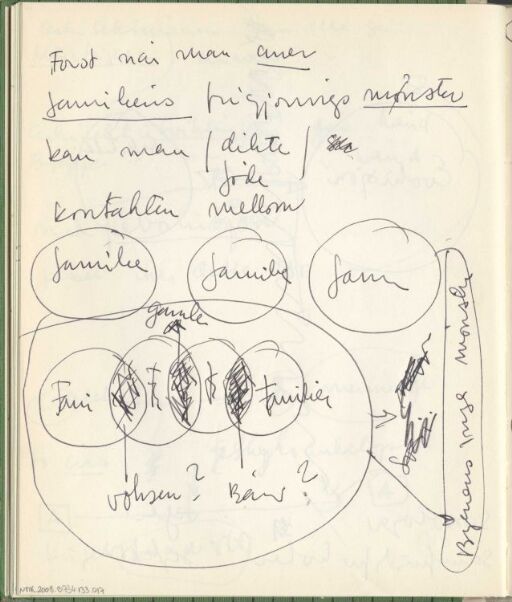 Først når man aner
familiens frigjørings mønster
kan man / dikte /
føde
kontakten mellom
familie familie fam
gamle
Fam F F Familier
voksen? Barn?
Byens nye mønster
NTM.2008.0734.133.047